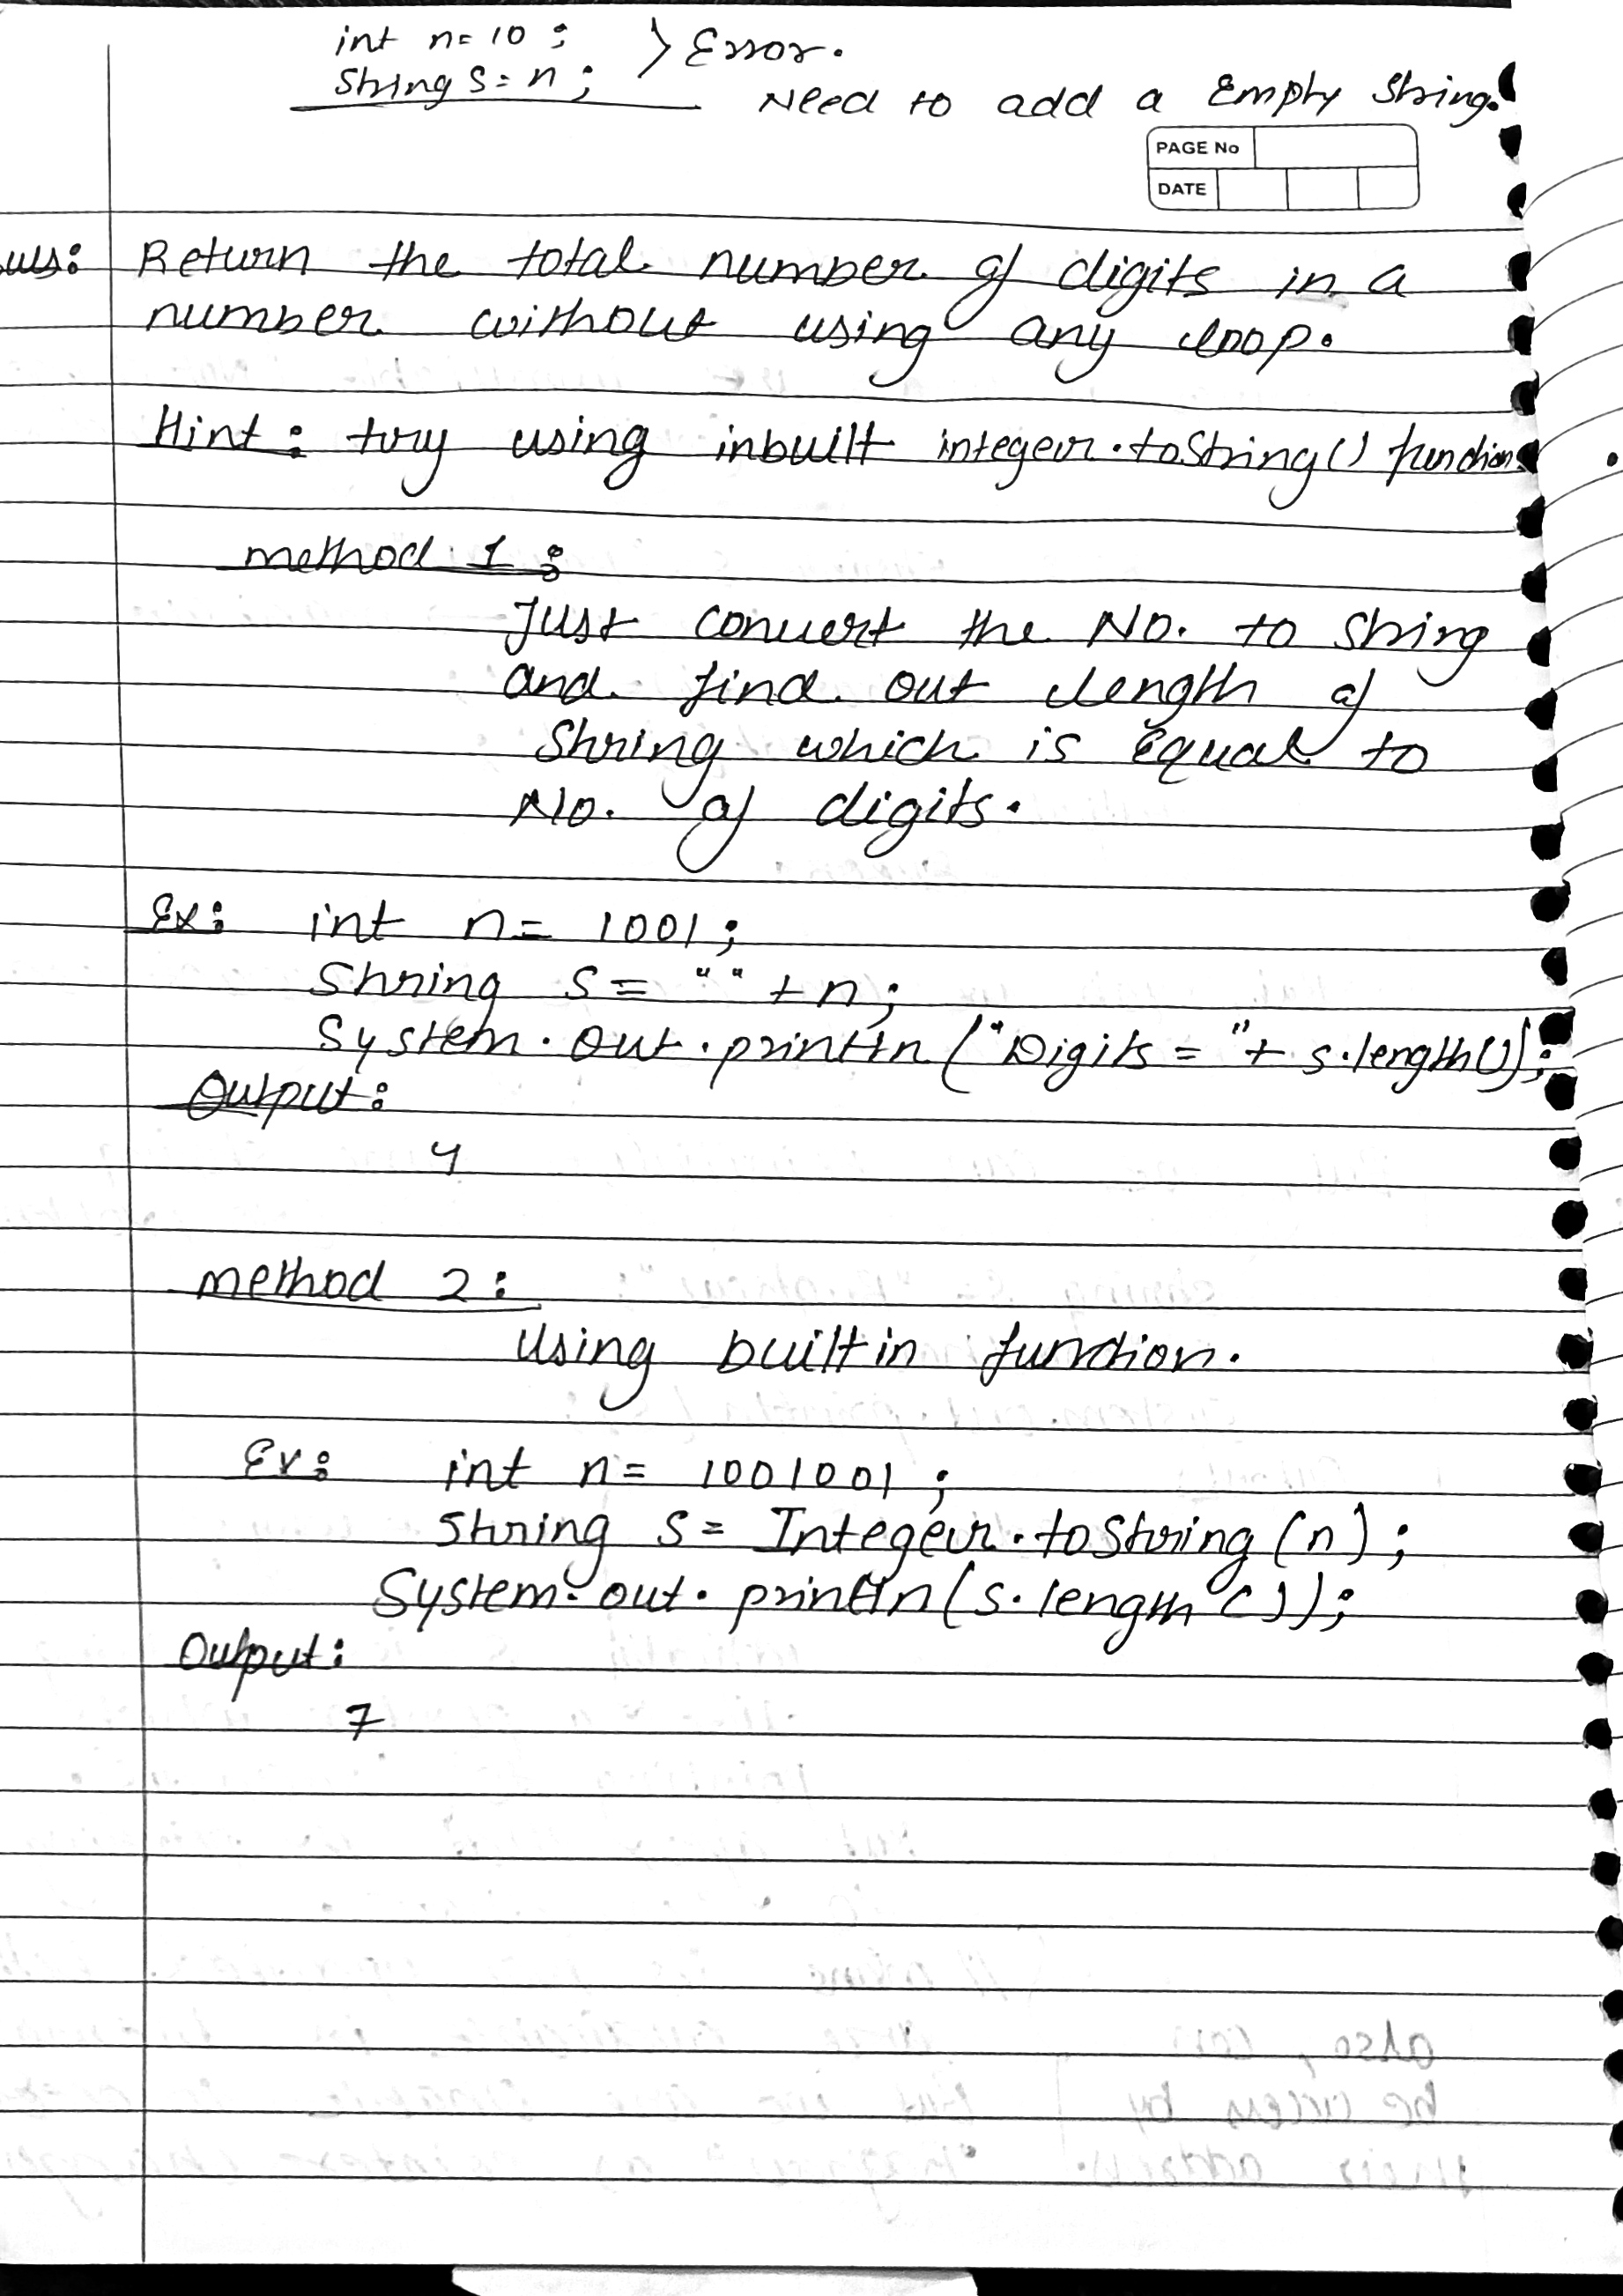 int n= 10 ;
String S= n ; } Error.
Need to add a Empty String.
PAGE No
DATE
Ques: Return the total number of digits in a
number without using any loop.
Hint: try using inbuilt integer.toString() function
method 1 :
Just convert the No. to String
and find out length of
String which is Equal to
No. of digits.
Ex: int n= 1001 ;
String S= "" +n ;
System.out.println ("Digits = "+ s.length());
Output:
4
method 2 :
Using builtin function.
Ex: int n= 1001001 ;
String S= Integer.toString (n) ;
System.out.println(s.length());
Output:
7